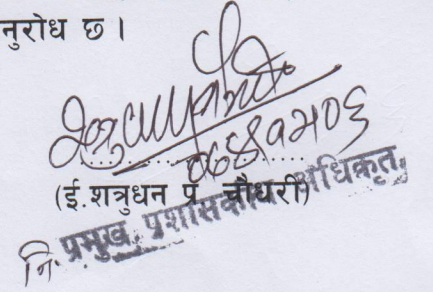 नुरोध छ।
(ई.शत्रुधन प्र चौधरी)
नि. प्रमुख प्रशासकीय अधिकृत